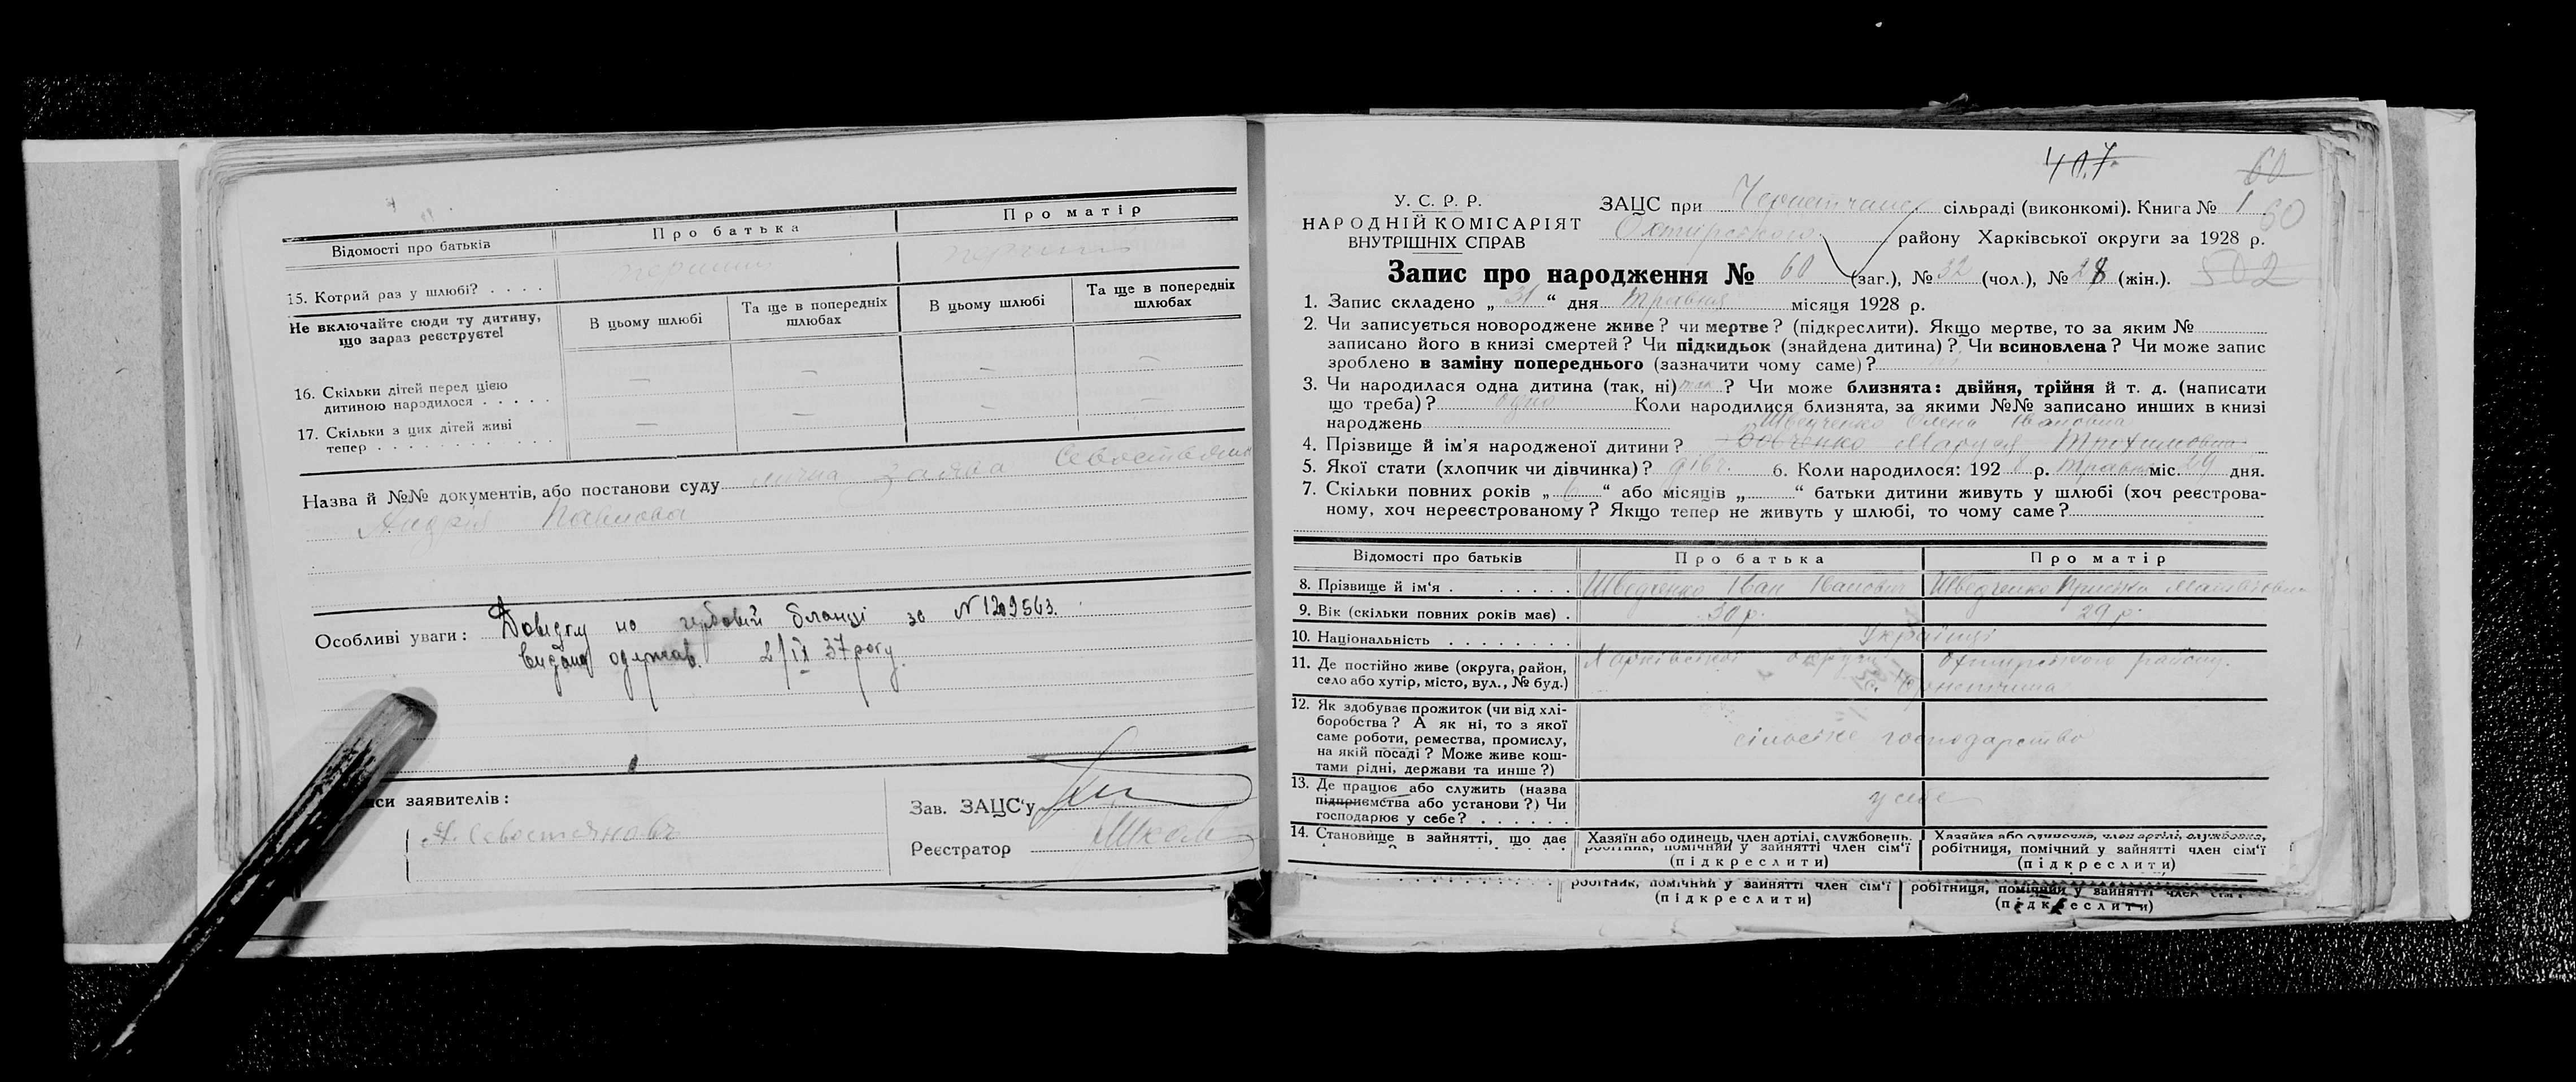 Відомості про батьків
Про батька
Про матір
15. Котрий раз у шлюбі? . . . .
Не включайте сюди ту дитину, що зараз реєструєте!
В цьому шлюбі
Та ще в попередніх шлюбах
В цьому шлюбі
Та ще в попередніх шлюбах
16. Скільки дітей перед цією
дитиною народилося . . . . .
— — — —
17. Скільки з цих дітей живі
тепер . . . . . . . . . . . .
— — — —
Назва й №№ документів, або постанови суду лична заява
Андрія Павлова
Особливі уваги: Довідку на гербовій бланці за N 1209563.
одержав. 2/IX 37 року.
заявителів:
А. Севостянов
Зав. ЗАЦС'у
Реєстратор
407.
60
У. С. Р. Р.
НАРОДНІЙ КОМІСАРІЯТ
ВНУТРІШНІХ СПРАВ
ЗАЦС при сільраді (виконкомі). Книга № 1
60
Охтирського району Харківської округи за 1928 р.
Запис про народження № 60 (заг.), № 32 (чол.), № 28 (жін.).
502
1. Запис складено „ 31 “ дня травня місяця 1928 р.
2. Чи записується новороджене живе? чи мертве? (підкреслити). Якщо мертве, то за яким №
записано його в книзі смертей? Чи підкидьок (знайдена дитина)? Чи всиновлена? Чи може запис
зроблено в заміну попереднього (зазначити чому саме)?
3. Чи народилася одна дитина (так, ні) так ? Чи може близнята: двійня, трійня й т. д. (написати
що треба)? одно Коли народилися близнята, за якими №№ записано инших в книзі
народжень
Шведченко Олена Івановна
4. Прізвище й ім'я народженої дитини? Маруся Трохимовна
5. Якої стати (хлопчик чи дівчинка)? дівч. 6. Коли народилося: 192 8 р. травня міс. 29 дня.
7. Скільки повних років „ 6 “ або місяців „ “ батьки дитини живуть у шлюбі (хоч реєстрова-
ному, хоч нереєстрованому? Якщо тепер не живуть у шлюбі, то чому саме?
Відомості про батьків
Про батька
Про матір
8. Прізвище й ім'я . . . . . . . . .
Шведченко Іван Іванович
Шведченко
9. Вік (скільки повних років має) .
30 р.
29 р.
10. Національність . . . . . . .
Українці
11. Де постійно живе (округа, район,
село або хутір, місто, вул., № буд.)
Харківської округи Охтирського району.
с. Чернетчина
12. Як здобуває прожиток (чи від хлі-
боробства? А як ні, то з якої
саме роботи, ремества, промислу,
на якій посаді? Може живе кош-
тами рідні, держави та инше?)
сільське господарство
13. Де працює або служить (назва
підприємства або установи?) Чи
господарює у себе? . . . . . .
у себе
14. Становище в зайнятті, що дає
Хазяїн або одинець, член артілі, службовець,
робітник, помічний у зайнятті член сім'ї
(підкреслити)
Хазяйка або одиначка, член артілі, службовка,
робітниця, помічний у зайнятті член сім'ї
(підкреслити)
робітник, помічний у зайнятті член сім'ї
(підкреслити)
робітниця, помічний у зайнятті член сім'ї
(підкреслити)